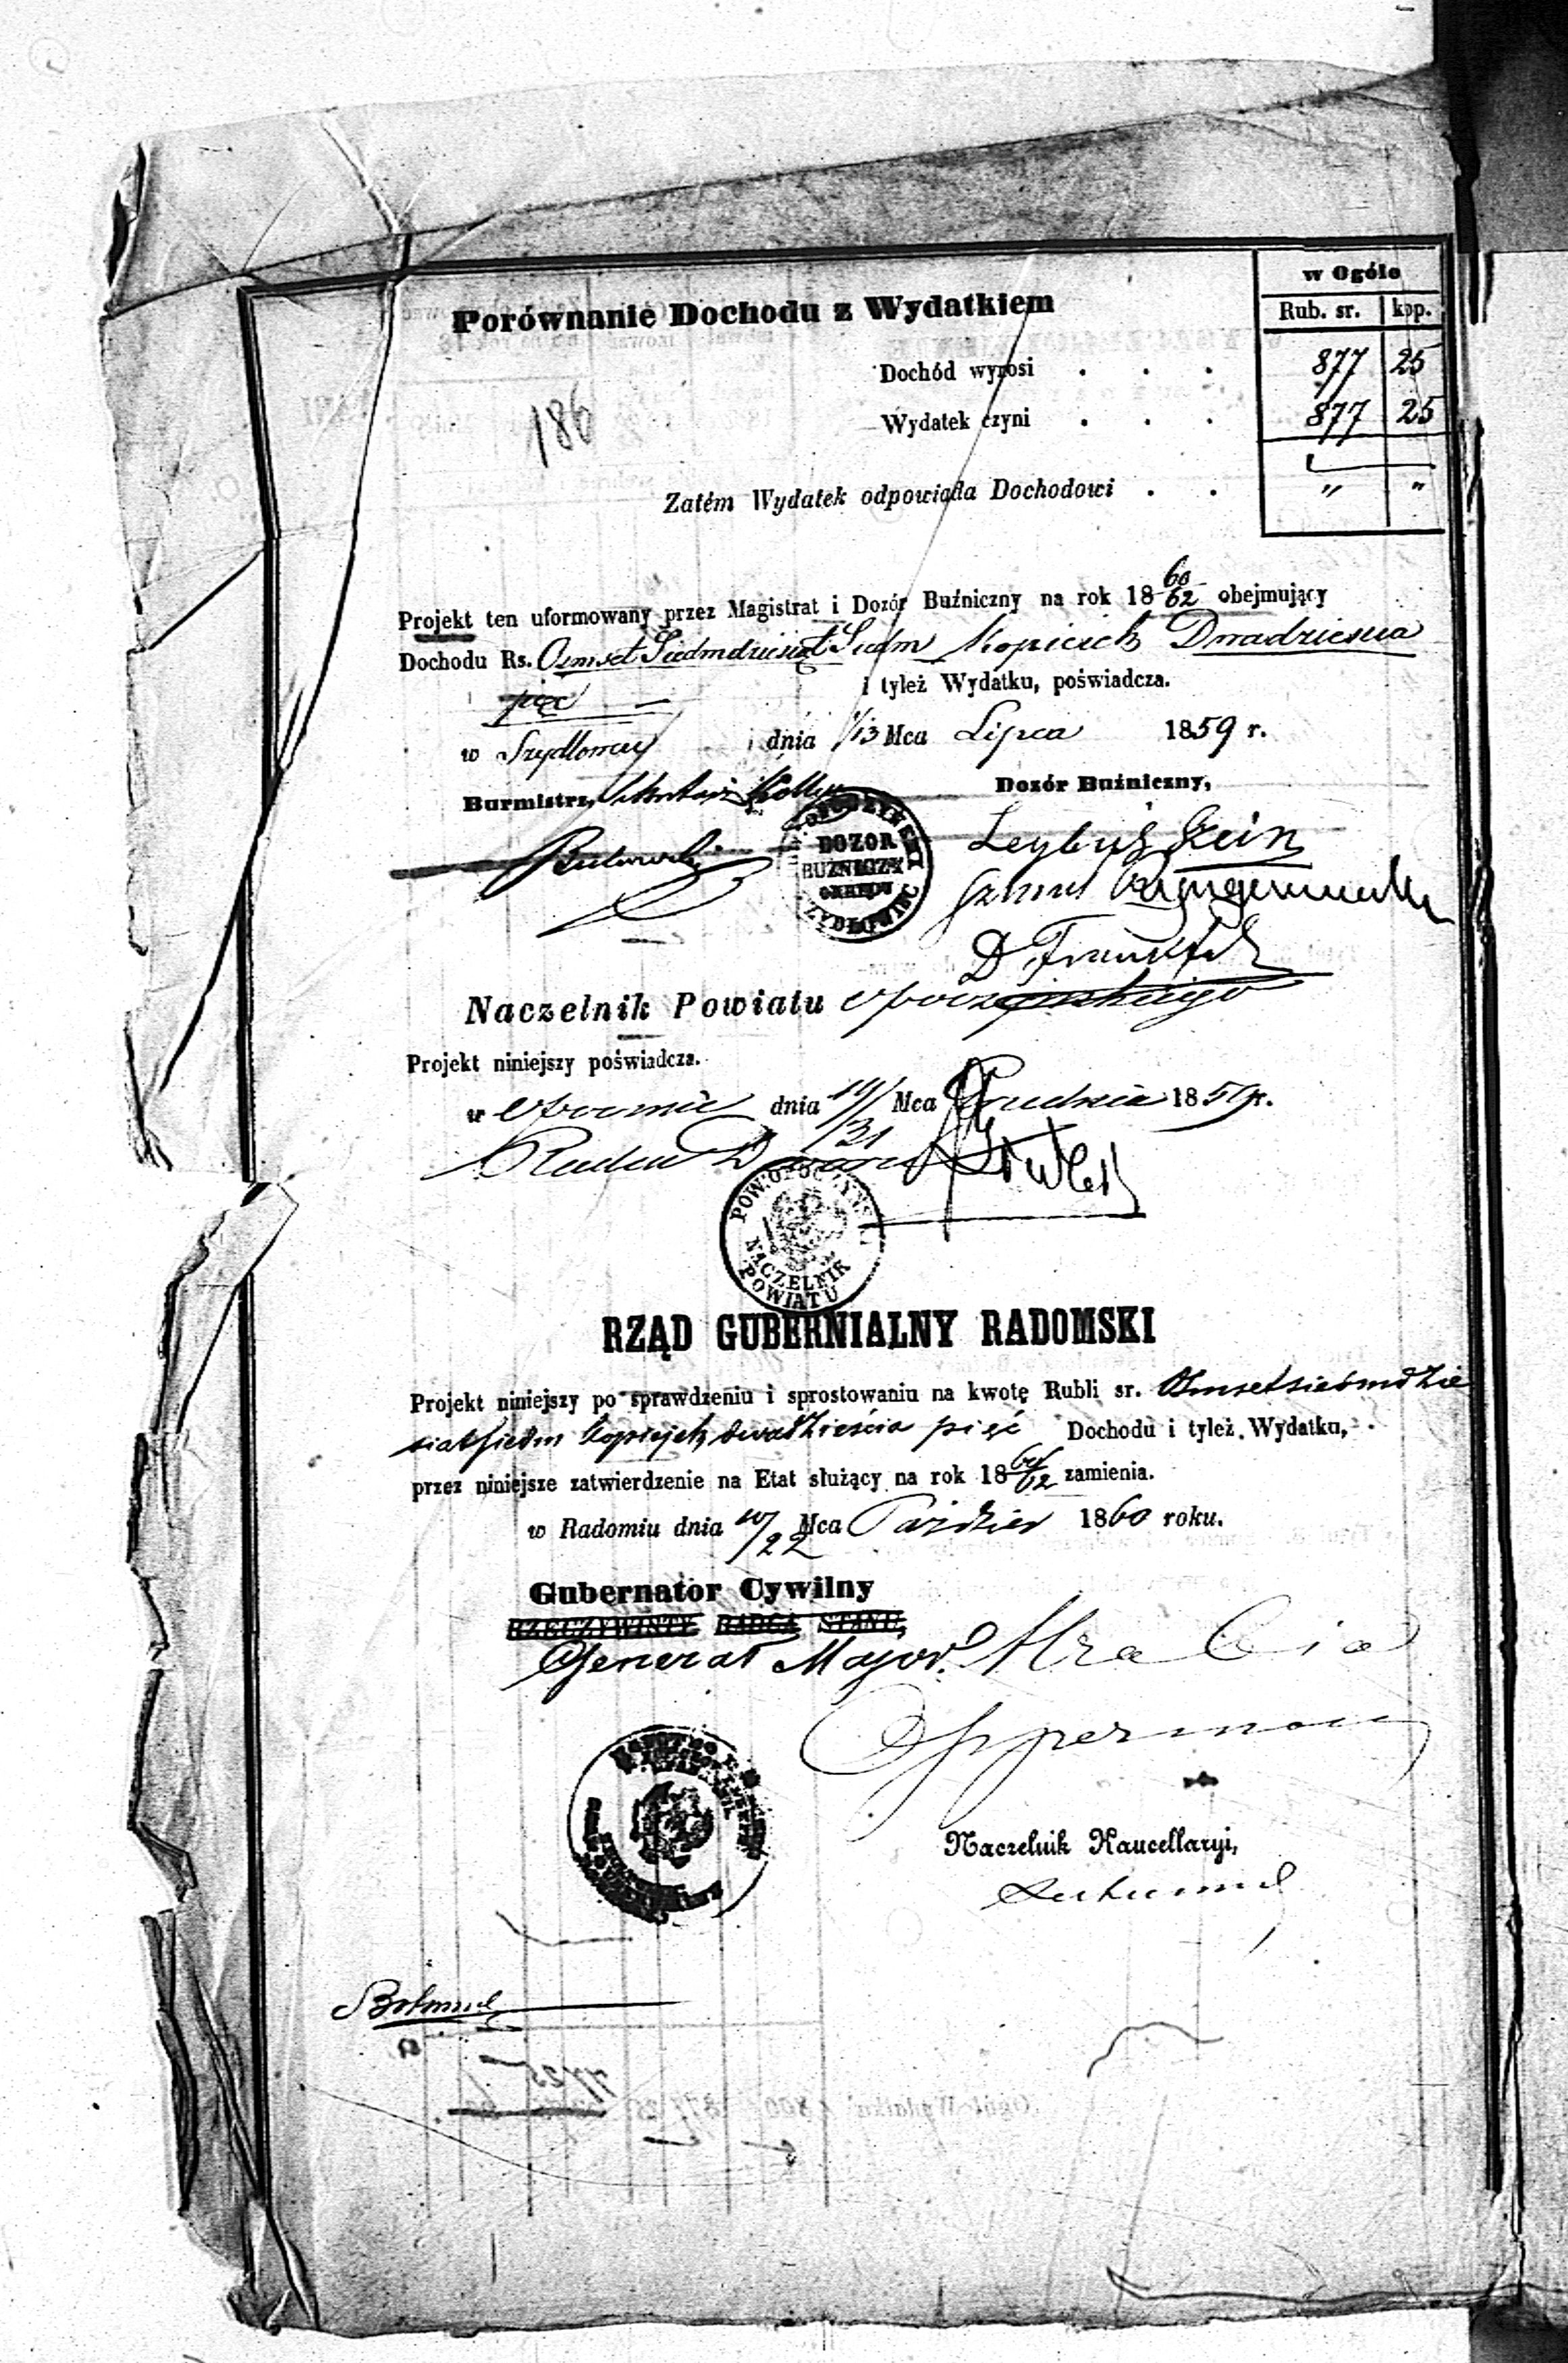 w Ogóle
Porównanie Dochodu z Wydatkiem
Rub. sr. kop.
Dochód wynosi . . . 877 25
186
Wydatek czyni . . . 877 25
Zatém Wydatek odpowiada Dochodowi . . " "
Projekt ten uformowany przez Magistrat i Dozór Buźniczny na rok 18 60/62 obejmujący
Dochodu Rs. Osmset Siedmdziesiąt Siedm Kopieiek Dwadziescia
pięć — i tyleż Wydatku, poświadcza.
w Szydłowcu dnia 1/13 Mca Lipca 1859 r.
Burmistrz, Dozór Buźniczny,
DOZOR
BUZNICZY
OKRĘGU
D Frankful
Naczelnik Powiatu Opoczyńskiego
Projekt niniejszy poświadcza.
w Opocznie dnia 19/31 Mca Grudnia 1859 r.
POW. OPOCZYNSKI
NACZELNIK
POWIATU
RZĄD GUBERNIALNY RADOMSKI
Projekt niniejszy po sprawdzeniu i sprostowaniu na kwotę Rubli sr. Osmset siedmdzie
siąt siedm kopiejek dwadzieścia pięć Dochodu i tyleż Wydatku,
przez niniejsze zatwierdzenie na Etat służący na rok 18 60/62 zamienia.
w Radomiu dnia 10/22 Mca Paździer 1860 roku.
Gubernator Cywilny
RZECZYWISTY RADCA STANU,
Generał Major. Hrabia
Opperman
Naczelnik Kancellaryi,